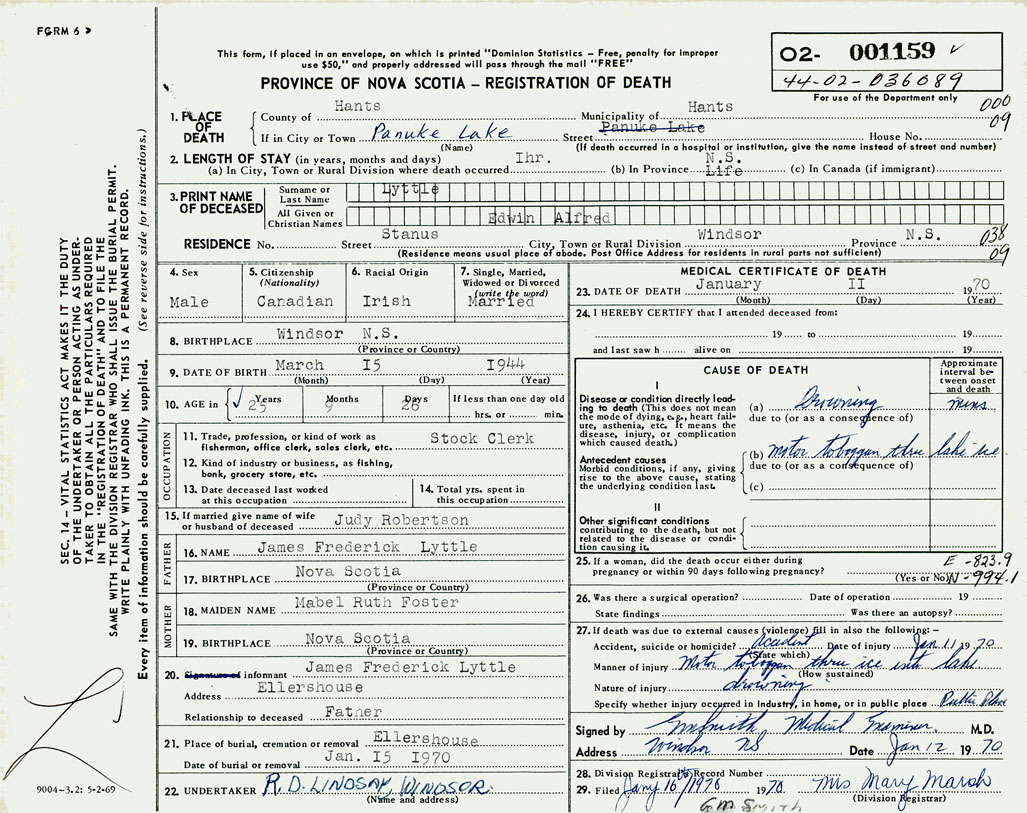 FORM 6
This form, if placed in an envelope, on which is printed "Dominion Statistics – Free, penalty for improper
use $50," and properly addressed will pass through the mail "FREE"
PROVINCE OF NOVA SCOTIA – REGISTRATION OF DEATH
O2- 001159
44-02-036089
For use of the Department only
000
09
1. PLACE OF DEATH
County of Hants Municipality of Hants
If in City or Town Panuke Lake Street Panuke Lake House No.
(Name) (If death occurred in a hospital or institution, give the name instead of street and number)
2. LENGTH OF STAY (in years, months and days)
(a) In City, Town or Rural Division where death occurred Ihr. (b) In Province N.S. Life (c) In Canada (if immigrant)
3. PRINT NAME OF DECEASED
Surname or Last Name Lyttle
All Given or Christian Names Edwin Alfred
RESIDENCE No. Street Stanus City, Town or Rural Division Windsor Province N.S.
(Residence means usual place of abode. Post Office Address for residents in rural parts not sufficient)
038
09
4. Sex
Male
5. Citizenship
(Nationality)
Canadian
6. Racial Origin
Irish
7. Single, Married,
Widowed or Divorced
(write the word)
Married
8. BIRTHPLACE Windsor N.S.
(Province or Country)
9. DATE OF BIRTH March I5 I944
(Month) (Day) (Year)
10. AGE in Years 25 Months 9 Days 26 If less than one day old
hrs. or min.
OCCUPATION
11. Trade, profession, or kind of work as
fisherman, office clerk, sales clerk, etc. Stock Clerk
12. Kind of industry or business, as fishing,
bank, grocery store, etc.
13. Date deceased last worked
at this occupation
14. Total yrs. spent in
this occupation
15. If married give name of wife
or husband of deceased Judy Robertson
FATHER
16. NAME James Frederick Lyttle
17. BIRTHPLACE Nova Scotia
(Province or Country)
MOTHER
18. MAIDEN NAME Mabel Ruth Foster
19. BIRTHPLACE Nova Scotia
(Province or Country)
20. Signature of informant James Frederick Lyttle
Address Ellershouse
Relationship to deceased Father
21. Place of burial, cremation or removal Ellershouse
Date of burial or removal Jan. I5 I970
22. UNDERTAKER R.D. LINDSAY, WINDSOR.
(Name and address)
MEDICAL CERTIFICATE OF DEATH
23. DATE OF DEATH January II 1970
(Month) (Day) (Year)
24. I HEREBY CERTIFY that I attended deceased from:
19 to 19
and last saw h alive on 19
CAUSE OF DEATH
Approximate
interval be-
tween onset
and death
I
Disease or condition directly lead-
ing to death (This does not mean
the mode of dying, e.g., heart fail-
ure, asthenia, etc. It means the
disease, injury, or complication
which caused death.)
(a) Drowning mins
due to (or as a consequence of)
Antecedent causes
Morbid conditions, if any, giving
rise to the above cause, stating
the underlying condition last.
(b) motor toboggan thru lake ice
due to (or as a consequence of)
(c)
II
Other significant conditions
contributing to the death, but not
related to the disease or condi-
tion causing it.
25. If a woman, did the death occur either during
pregnancy or within 90 days following pregnancy?
(Yes or No)
E - 823.9
N - 994.1
26. Was there a surgical operation? Date of operation 19
State findings Was there an autopsy?
27. If death was due to external causes (violence) fill in also the following:–
Accident, suicide or homicide? Accident Date of injury Jan 11 1970
(State which)
Manner of injury Motor toboggan thru ice into lake
(How sustained)
Nature of injury drowning
Specify whether injury occurred in Industry, in home, or in public place Public Place
Signed by GMSmith Medical Examiner M.D.
Address Windsor NS Date Jan 12 1970
28. Division Registrar's Record Number
29. Filed Jany 16/1970 1970 Mrs Mary Marsh
(Division Registrar)
G.M. SMITH
SEC. 14 – VITAL STATISTICS ACT MAKES IT THE DUTY
OF THE UNDERTAKER OR PERSON ACTING AS UNDER-
TAKER TO OBTAIN ALL THE PARTICULARS REQUIRED
IN THE "REGISTRATION OF DEATH" AND TO FILE THE
SAME WITH THE DIVISION REGISTRAR WHO SHALL ISSUE THE BURIAL PERMIT.
WRITE PLAINLY WITH UNFADING INK. THIS IS A PERMANENT RECORD.
Every item of information should be carefully supplied. (See reverse side for instructions.)
9004-3.2: 5-2-69